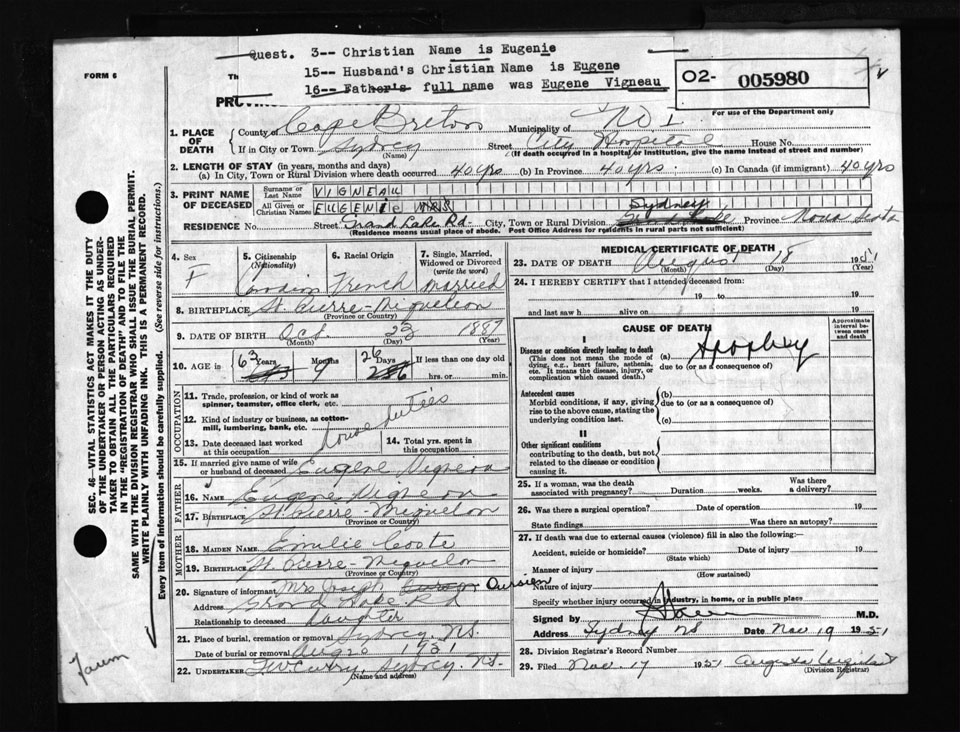 Quest. 3-- Christian Name is Eugenie
15-- Husband's Christian Name is Eugene
16-- Father's full name was Eugene Vigneau
O2- 005980
For use of the Department only
FORM 6
Th
PROVINC
1. PLACE OF DEATH
County of Cape Breton Municipality of No 1
If in City or Town Sydney (Name) Street City Hospital House No.
(If death occurred in a hospital or institution, give the name instead of street and number)
2. LENGTH OF STAY (in years, months and days)
(a) In City, Town or Rural Division where death occurred 40 yrs (b) In Province 40 yrs (c) In Canada (if immigrant) 40 yrs
3. PRINT NAME OF DECEASED
Surname or Last Name VIGNEAU
All Given or Christian Names EUGENIE MRS
RESIDENCE No. Street Grand Lake Rd. City, Town or Rural Division Sydney Province Nova Scotia
(Residence means usual place of abode. Post Office Address for residents in rural parts not sufficient)
4. Sex F
5. Citizenship (Nationality) Canadian
6. Racial Origin French
7. Single, Married, Widowed or Divorced (write the word) Married
8. BIRTHPLACE St. Pierre-Miquelon
(Province or Country)
9. DATE OF BIRTH Oct. 23 1887
(Month) (Day) (Year)
10. AGE in 63 Years 9 Months 26 Days If less than one day old
hrs. or min.
OCCUPATION
11. Trade, profession, or kind of work as spinner, teamster, office clerk, etc.
house duties
12. Kind of industry or business, as cotton-mill, lumbering, bank, etc.
13. Date deceased last worked at this occupation
14. Total yrs. spent in this occupation
15. If married give name of wife or husband of deceased Eugene Vigneau
FATHER
16. NAME Eugene Vigneau
17. BIRTHPLACE St. Pierre-Miquelon
(Province or Country)
MOTHER
18. MAIDEN NAME Emilie Coste
19. BIRTHPLACE St. Pierre-Miquelon
(Province or Country)
20. Signature of informant Mrs Joseph
Address Grand Lake Rd
Relationship to deceased Daughter
21. Place of burial, cremation or removal Sydney, N.S.
Date of burial or removal Aug 20 1951
22. UNDERTAKER Sydney, N.S.
(Name and address)
MEDICAL CERTIFICATE OF DEATH
23. DATE OF DEATH August 18 1951
(Month) (Day) (Year)
24. I HEREBY CERTIFY that I attended deceased from
19 to 19
and last saw h alive on 19
CAUSE OF DEATH
Approximate interval between onset and death
I
Disease or condition directly leading to death
(This does not mean the mode of dying, e.g., heart failure, asthenia, etc. It means the disease, injury, or complication which caused death.)
(a)
due to (or as a consequence of)
Antecedent causes
Morbid conditions, if any, giving rise to the above cause, stating the underlying condition last.
(b)
due to (or as a consequence of)
(c)
II
Other significant conditions
contributing to the death, but not related to the disease or condition causing it.
25. If a woman, was the death associated with pregnancy? Duration weeks. Was there a delivery?
26. Was there a surgical operation? Date of operation 19
State findings Was there an autopsy?
27. If death was due to external causes (violence) fill in also the following:—
Accident, suicide or homicide? Date of injury 19
(State which)
Manner of injury
(How sustained)
Nature of injury
Specify whether injury occurred in industry, in home, or in public place
Signed by M.D.
Address Sydney NS Date Nov 19 1951
28. Division Registrar's Record Number
29. Filed Nov. 17 1951
(Division Registrar)
SEC. 46—VITAL STATISTICS ACT MAKES IT THE DUTY
OF THE UNDERTAKER OR PERSON ACTING AS UNDER-
TAKER TO OBTAIN ALL THE PARTICULARS REQUIRED
IN THE "REGISTRATION OF DEATH" AND TO FILE THE
SAME WITH THE DIVISION REGISTRAR WHO SHALL ISSUE THE BURIAL PERMIT.
WRITE PLAINLY WITH UNFADING INK. THIS IS A PERMANENT RECORD.
Every item of information should be carefully supplied. (See reverse side for instructions.)